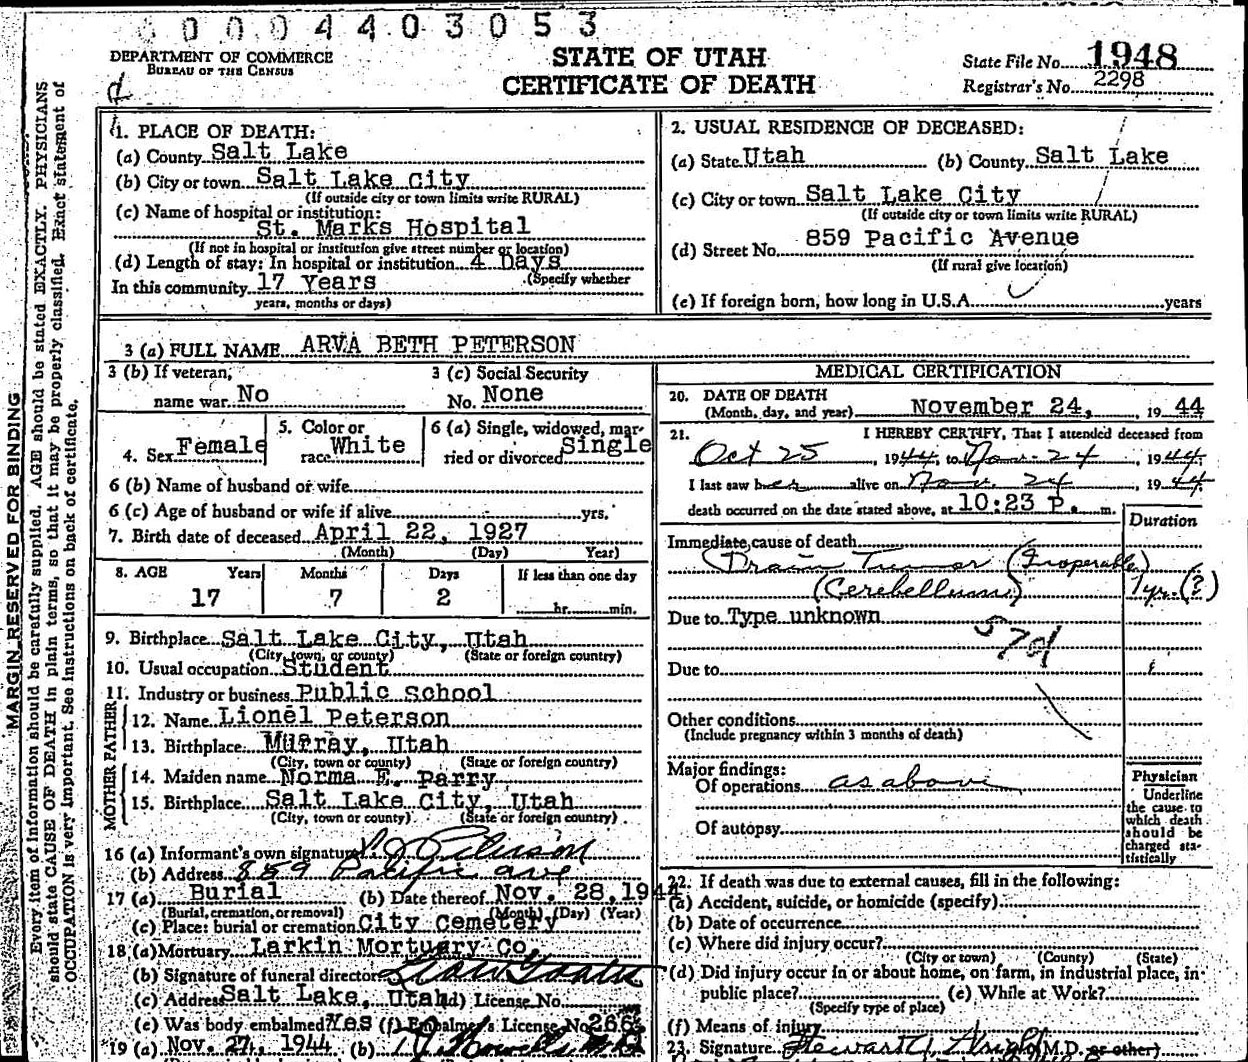 0004403053
DEPARTMENT OF COMMERCE
BUREAU OF THE CENSUS
STATE OF UTAH
CERTIFICATE OF DEATH
State File No. 1948
Registrar's No. 2298
MARGIN RESERVED FOR BINDING
Every item of information should be carefully supplied. AGE should be stated EXACTLY. PHYSICIANS
should state CAUSE OF DEATH in plain terms, so that it may be properly classified. Exact statement of
OCCUPATION is very important. See instructions on back of certificate.
1. PLACE OF DEATH:
(a) County Salt Lake
(b) City or town Salt Lake City
(If outside city or town limits write RURAL)
(c) Name of hospital or institution:
St. Marks Hospital
(If not in hospital or institution give street number or location)
(d) Length of stay: In hospital or institution 4 Days
(Specify whether
In this community 17 Years
years, months or days)
2. USUAL RESIDENCE OF DECEASED:
(a) State Utah (b) County Salt Lake
(c) City or town Salt Lake City
(If outside city or town limits write RURAL)
(d) Street No. 859 Pacific Avenue
(If rural give location)
(e) If foreign born, how long in U.S.A. years
3 (a) FULL NAME ARVA BETH PETERSON
3 (b) If veteran, 3 (c) Social Security
name war No No. None
4. Sex Female 5. Color or race White 6 (a) Single, widowed, married or divorced Single
6 (b) Name of husband or wife
6 (c) Age of husband or wife if alive yrs.
7. Birth date of deceased April 22, 1927
(Month) (Day) Year)
8. AGE Years Months Days If less than one day
17 7 2 hr. min.
9. Birthplace Salt Lake City, Utah
(City, town, or county) (State or foreign country)
10. Usual occupation Student
11. Industry or business Public School
FATHER
12. Name Lionel Peterson
13. Birthplace Murray, Utah
(City, town or county) (State or foreign country)
MOTHER
14. Maiden name Norma E. Parry
15. Birthplace Salt Lake City, Utah
(City, town or county) (State or foreign country)
16 (a) Informant's own signature Peterson
(b) Address 859 Pacific ave
17 (a) Burial (b) Date thereof Nov. 28, 1944
(Burial, cremation, or removal) (Month) (Day) (Year)
(c) Place: burial or cremation City Cemetery
18 (a) Mortuary Larkin Mortuary Co.
(b) Signature of funeral director
(c) Address Salt Lake, Utah (d) License No.
(e) Was body embalmed? Yes (f) Embalmer's License No. 266
19 (a) Nov. 27, 1944 (b)
MEDICAL CERTIFICATION
20. DATE OF DEATH
(Month, day, and year) November 24, 19 44
21. I HEREBY CERTIFY, That I attended deceased from
Oct 25, 1944, to Nov. 24, 1944.
I last saw her alive on Nov. 24, 1944
death occurred on the date stated above, at 10:23 P. m.
Duration
Immediate cause of death
Brain Tumor (Inoperable)
(Cerebellum) 1 yr. (?)
Due to Type unknown
57d
Due to
Other conditions
(Include pregnancy within 3 months of death)
Major findings:
Of operations as above
Of autopsy
Physician
Underline
the cause to
which death
should be
charged sta-
tistically
22. If death was due to external causes, fill in the following:
(a) Accident, suicide, or homicide (specify)
(b) Date of occurrence
(c) Where did injury occur?
(City or town) (County) (State)
(d) Did injury occur in or about home, on farm, in industrial place, in
public place? (e) While at Work?
(Specify type of place)
(f) Means of injury
23. Signature Stewart A. Wright (M.D. or other)